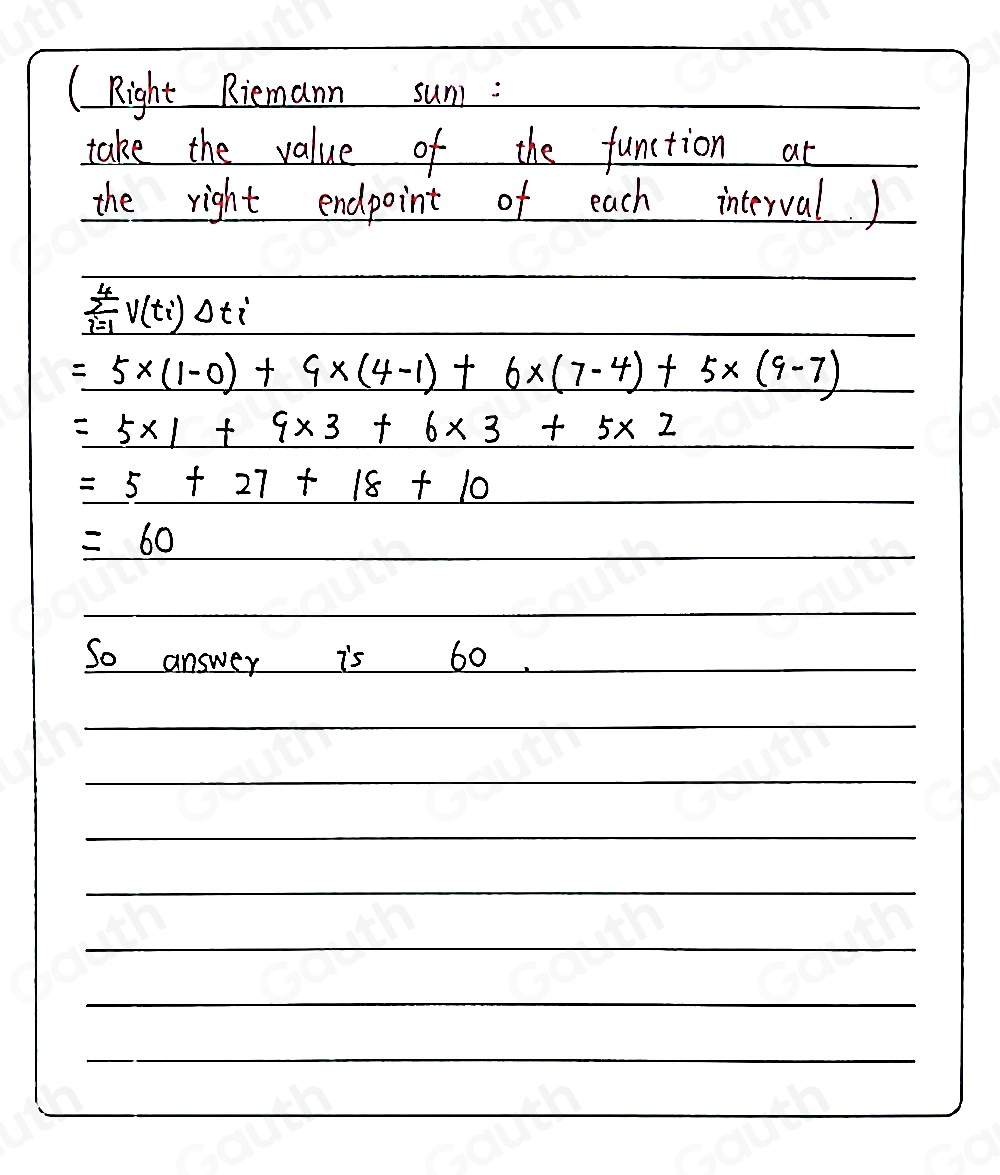 ( Right Riemann sum :
take the value of the function at
the right endpoint of each interval . )
\sum_{i=1}^{4} V(ti) Δti
= 5×(1-0) + 9×(4-1) + 6×(7-4) + 5×(9-7)
= 5×1 + 9×3 + 6×3 + 5×2
= 5 + 27 + 18 + 10
= 60
So answer is 60 .